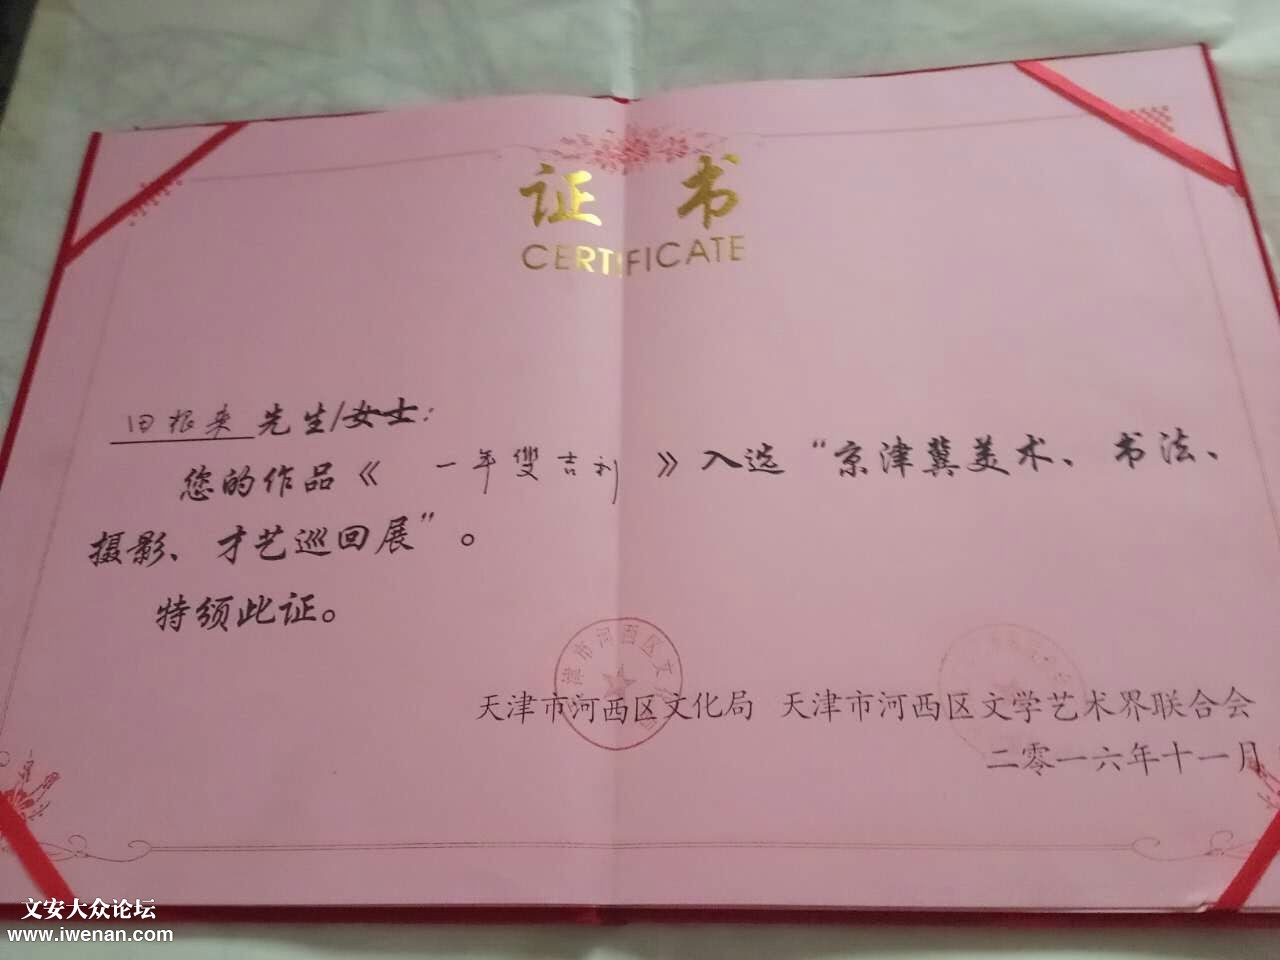 证书
CERTIFICATE
田根来先生/女士：
您的作品《一年雙吉利》入选“京津冀美术、书法、
摄影、才艺巡回展”。
特颁此证。
津市河西区文
天津市河西区文化局 天津市河西区文学艺术界联合会
二零一六年十一月
文安大众论坛
www.iwenan.com